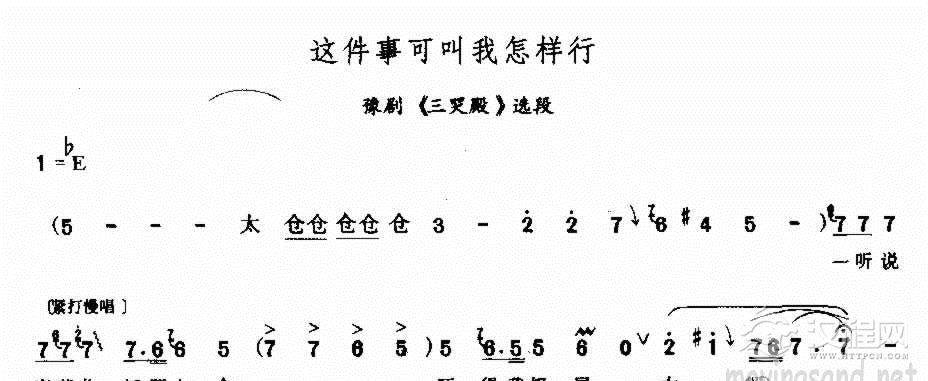 这件事可叫我怎样行
豫剘《三哭殿》选段
1=♭E
(5 - - - 太 仓仓 仓仓 仓 3 - 2̇ 2̇ 7 6 #4 5 - ) 7 7 7
一听说
〔紧打慢唱〕
7 7 7 7.6 6 5 ( 7 7 6 5 ) 5 6.5 5 6 0 ∨ 2̇ #1̇ 7 6 7. 7 -
汉程网
HTTPCN.COM
movingsand.net